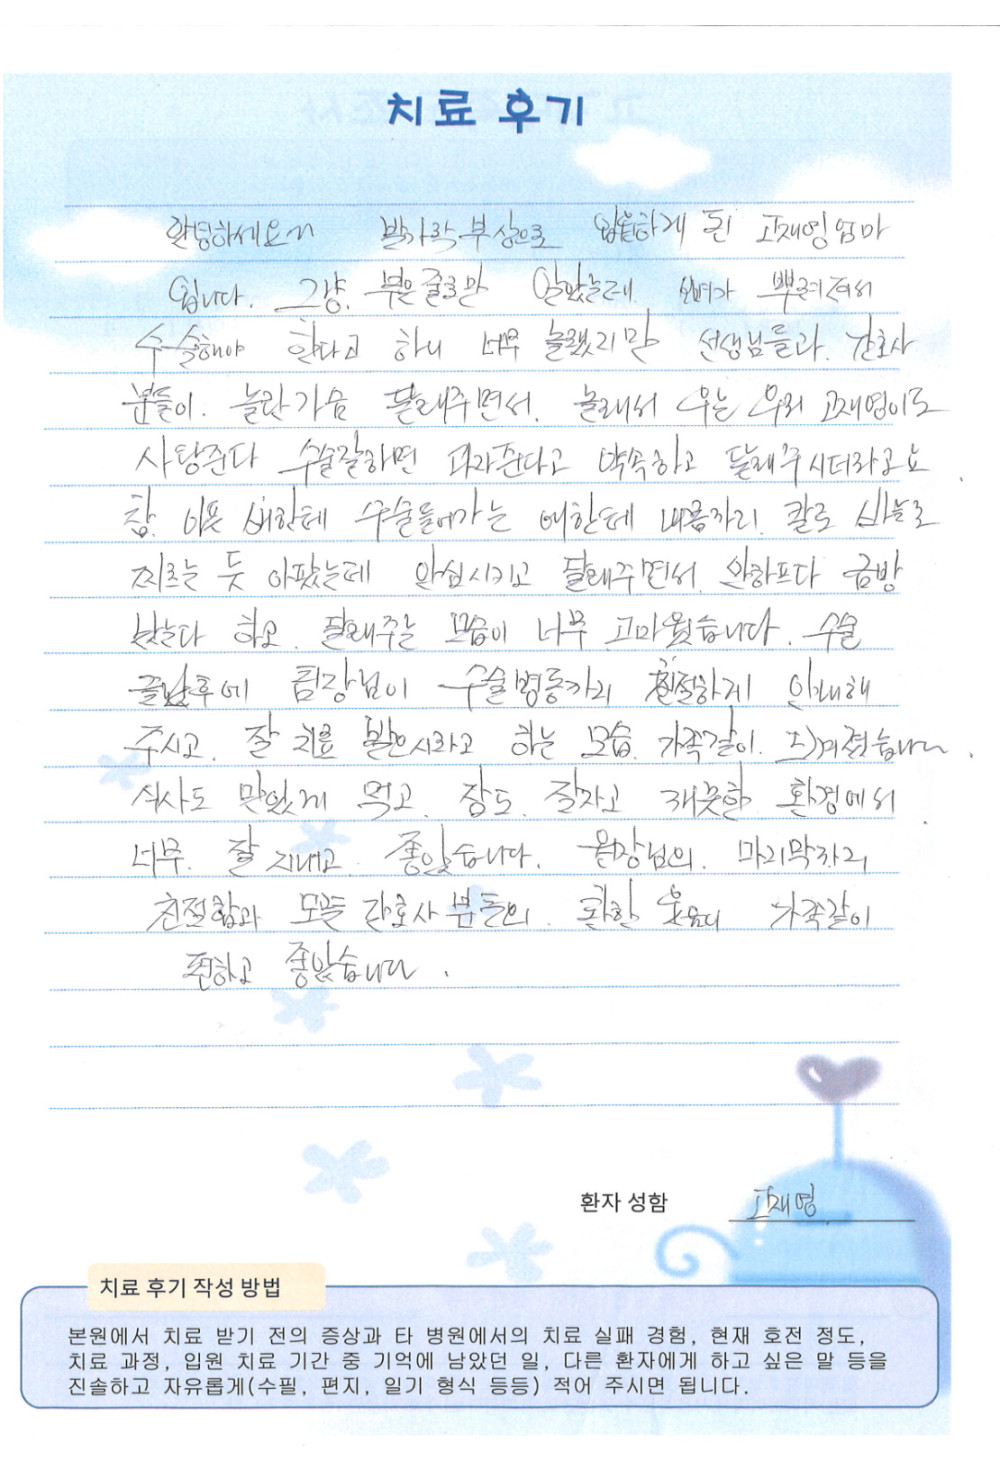 치료 후기
안녕하세요~ 발가락 부상으로 입원하게 된 고재영 엄마
입니다. 그냥. 부은줄로만 알았는데 뼈가 뿌러져서
수술해야 한다고 하니 너무 놀랬지만 선생님들과. 간호사
분들이. 놀란가슴 달래주면서. 놀래서 우는 우리 고재영이도
사탕준다 수술잘하면 과자준다고 약속하고 달래주시더라고요
참. 어린 애한테 수술들어가는 애한테 내 칼로 바늘로
찌르는 듯 아팠는데 안심시키고 달래주면서. 안아프다 금방
한다 하고. 달래주는 모습이 너무 고마웠습니다. 수술
끝난후에 팀장님이 수술병동까지 친절하게 안내해
주시고. 잘 치료 받으시라고 하는 모습. 가족같이. 느껴졌습니다.
식사도 맛있게 먹고. 잠도. 잘자고 깨끗한 환경에서
너무. 잘 지내고. 좋았습니다. 원장님의. 마지막까지
친절함과 모든 간호사 분들의. 환한 웃음이 가족같이
편하고 좋았습니다.
환자 성함 고재영
치료 후기 작성 방법
본원에서 치료 받기 전의 증상과 타 병원에서의 치료 실패 경험, 현재 호전 정도,
치료 과정, 입원 치료 기간 중 기억에 남았던 일, 다른 환자에게 하고 싶은 말 등을
진솔하고 자유롭게(수필, 편지, 일기 형식 등등) 적어 주시면 됩니다.